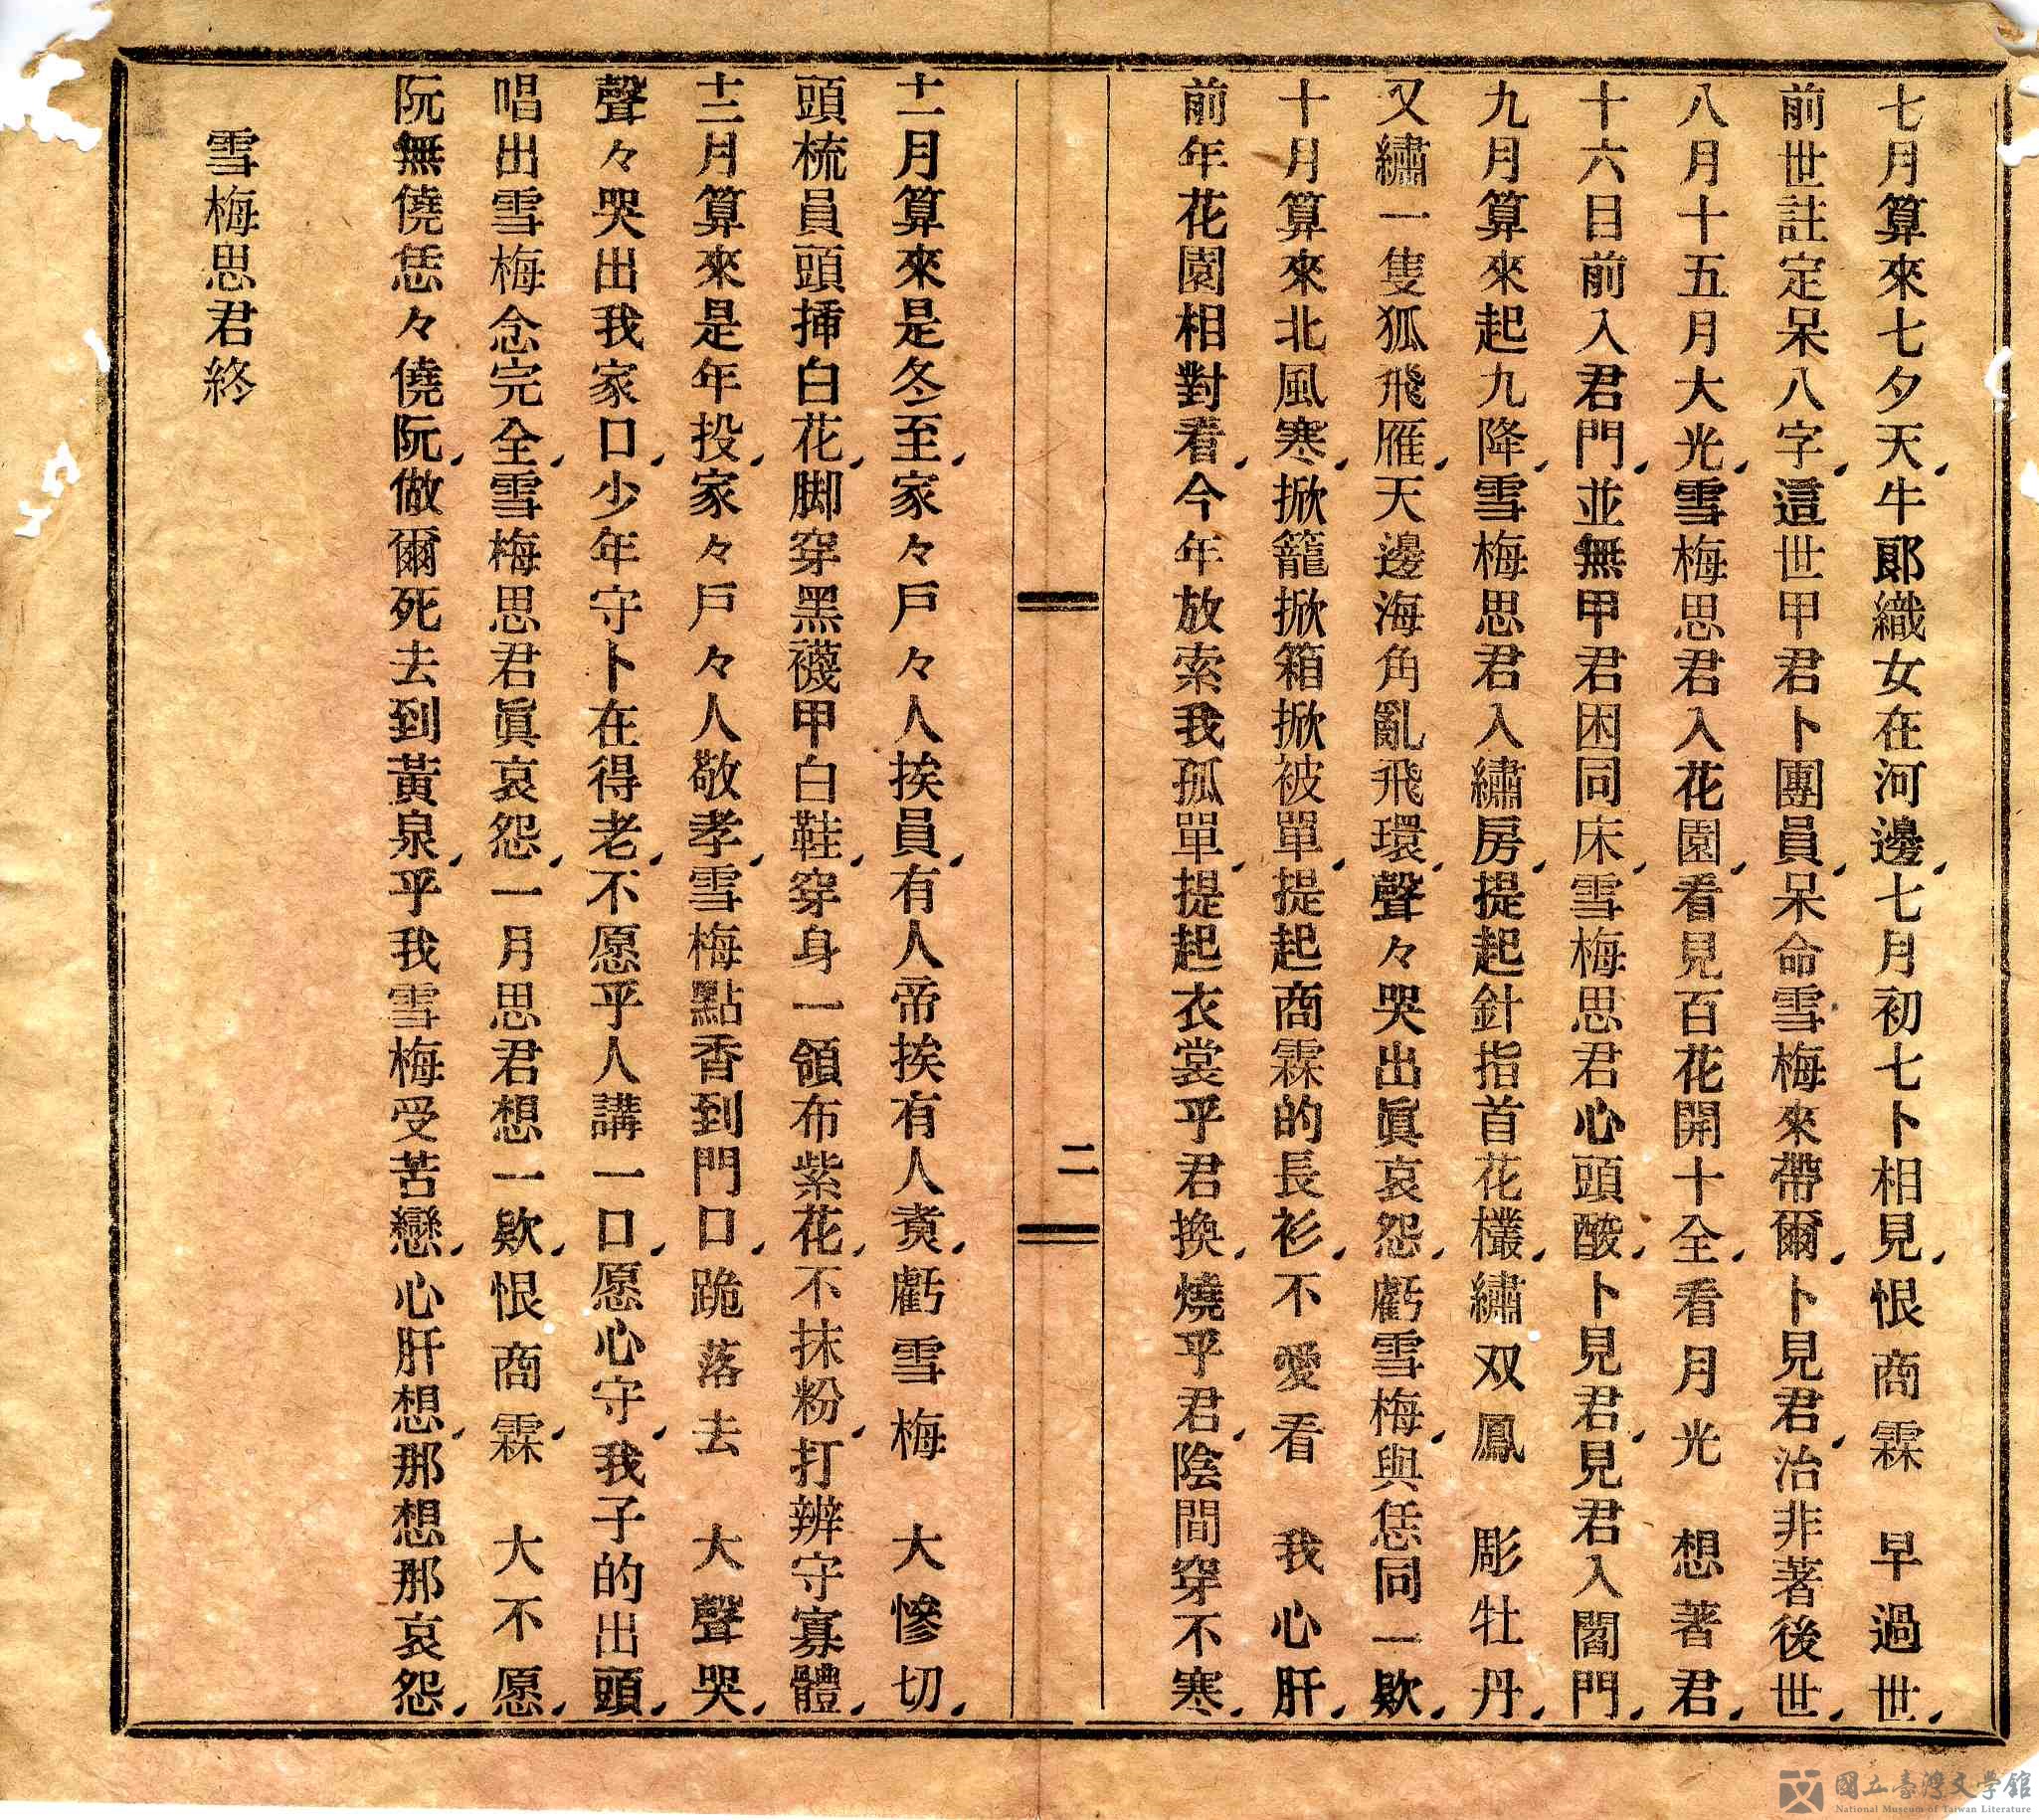 七月算來七夕天、牛郎織女在河邊、七月初七卜相見、恨商霖早過世、
前世註定呆八字、這世甲君卜團員、呆命雪梅來帶爾、卜見君、治非著後世、
八月十五月大光、雪梅思君入花園、看見百花開十全、看月光想著君、
十六目前入君門、並無甲君困同床、雪梅思君心頭酸、卜見君、見君入閻門、
九月算來起九降、雪梅思君入繡房、提起針指首花欉、繡双鳳彫牡丹、
又繡一隻狐飛雁、天邊海角亂飛環、聲々哭出眞哀怨、虧雪梅、與恁同一欵、
十月算來北風寒、掀籠掀箱掀被單、提起商霖的長衫、不愛看我心肝、
前年花園相對看、今年放索我孤單、提起衣裳乎君換、燒乎君、陰間穿不寒、
二
十一月算來是冬至、家々戶々人挨員、有人帝挨有人煑、虧雪梅大慘切、
頭梳員頭揷白花、脚穿黑襪甲白鞋、穿身一領布紫花、不抹粉、打辨守寡體、
十二月算來是年投、家々戶々人敬孝、雪梅點香到門口、跪落去大聲哭、
聲々哭出我家口、少年守卜在得老、不愿乎人講一口、愿心守、我子的出頭、
唱出雪梅念完全、雪梅思君眞哀怨、一月思君想一欵、恨商霖大不愿、
阮無僥恁々僥阮、做爾死去到黃泉、乎我雪梅受苦戀、心肝想、那想那哀怨、
雪梅思君終
國立臺灣文學館
National Museum of Taiwan Literature